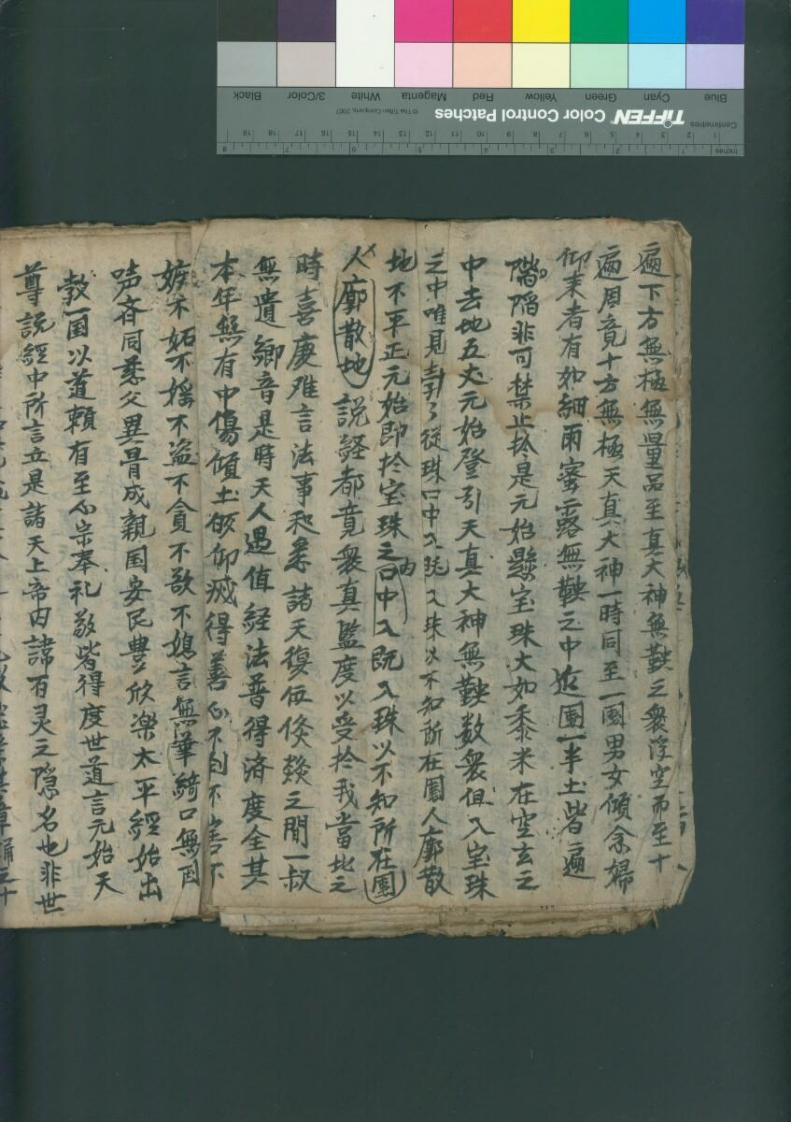 Blue Cyan Green Yellow Red Magenta White 3/Color Black
TIFFEN Color Control Patches © The Tiffen Company, 2007
Centimetres
Inches
遍下方無極無量品至真大神無鞅之衆浮空而至十
遍周竟十方無極天真大神一時同至一國男女傾念歸
仰来者有如細雨蜜霧無鞅之中迮國一半土皆遍
陷非可禁止扵是元始懸宝珠大如黍米在空玄之
中去地五丈元始登引天真大神無鞅数衆俱入宝珠
之中唯見勃勃從珠口中入既入珠以不知所在國人廓散
地不平正元始即扵宝珠之内口中入既入珠以不知所在國
人廓散地説経都竟衆真監度以受扵我當此之
時喜慶难言法事和柔諸天復位倏歘之間一叔
無遺鄉音是時天人遇值経法普得済度全其
本年無有中傷傾土歸仰咸得善心不
嫉不妬不婬不盗不貪不欲不媳言無華綺口無
声齐同慈父異骨成親国安民豊欣楽太平經始出
教一国以道頼有至心宗奉礼敬皆得度世道言元始天
尊説經中所言並是諸天上帝内諱百灵之隠名也非世